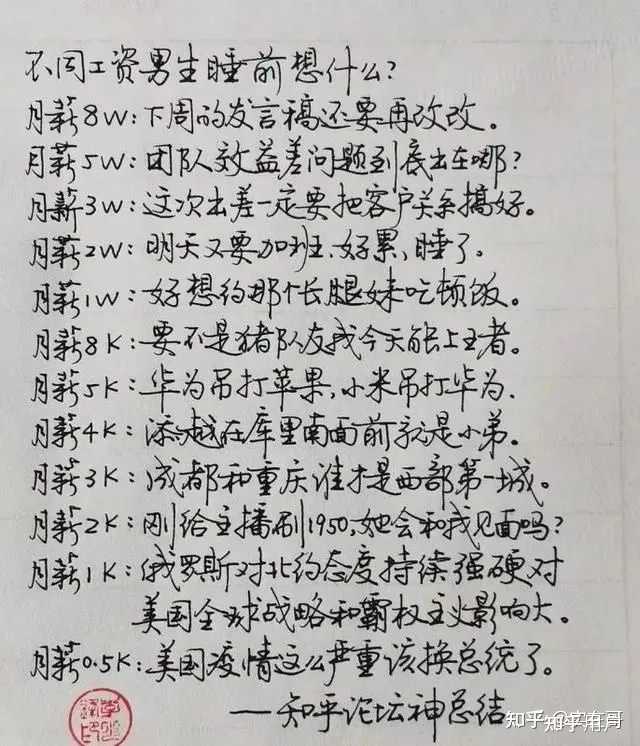 不同工资男生睡前想什么?
月薪8W:下周的发言稿还要再改改。
月薪5W:团队效益差问题到底出在哪?
月薪3W:这次出差一定要把客户关系搞好。
月薪2W:明天又要加班、好累,睡了。
月薪1W:好想约那个长腿妹吃顿饭。
月薪8K:要不是猪队友我今天能上王者。
月薪5K:华为吊打苹果,小米吊打华为.
月薪4K:添越在库里南面前就是小弟。
月薪3K:成都和重庆谁才是西部第一城。
月薪2K:刚给主播刷1950,她会和我见面吗?
月薪1K:俄罗斯对北约态度持续强硬,对
美国全球战略和霸权主义影响大。
月薪0.5K:美国疫情这么严重该换总统了。
——知乎论坛神总结